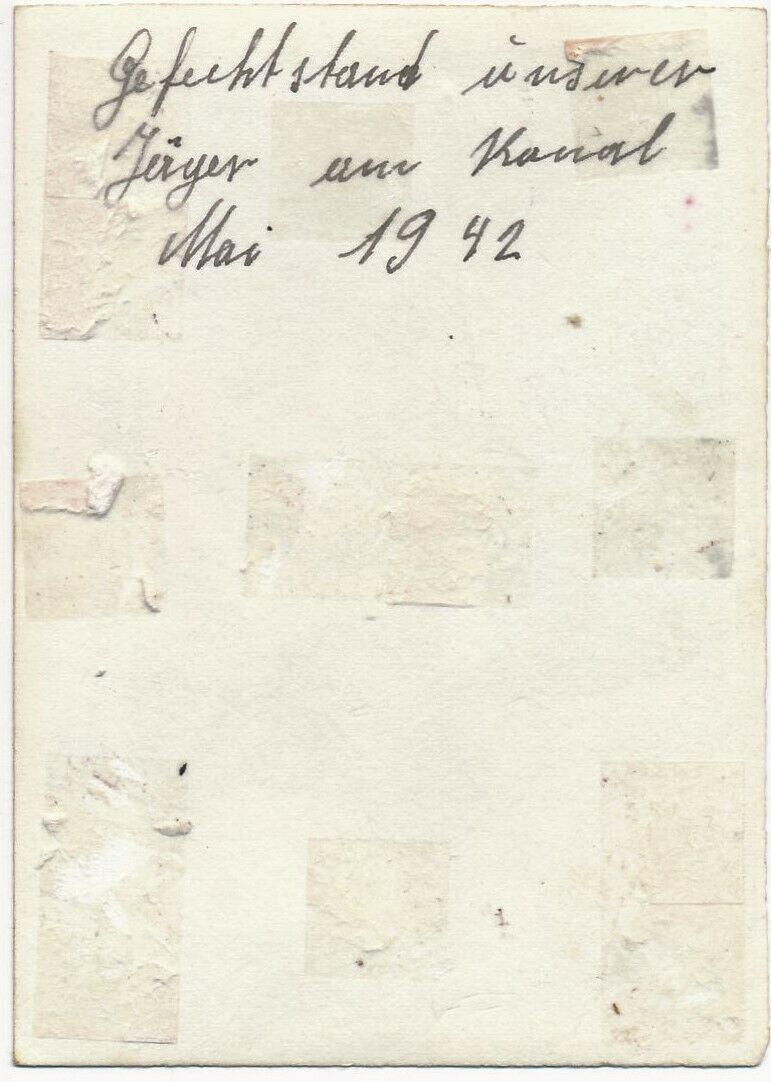 Gefechtstand unserer
Jäger am Kanal
Mai 1942